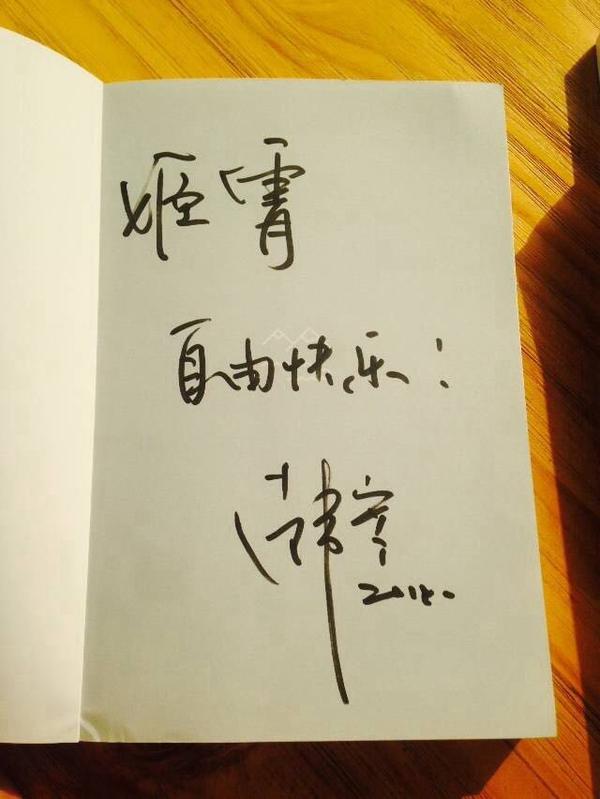 姬霄
自由快乐!
韩寒
2014.